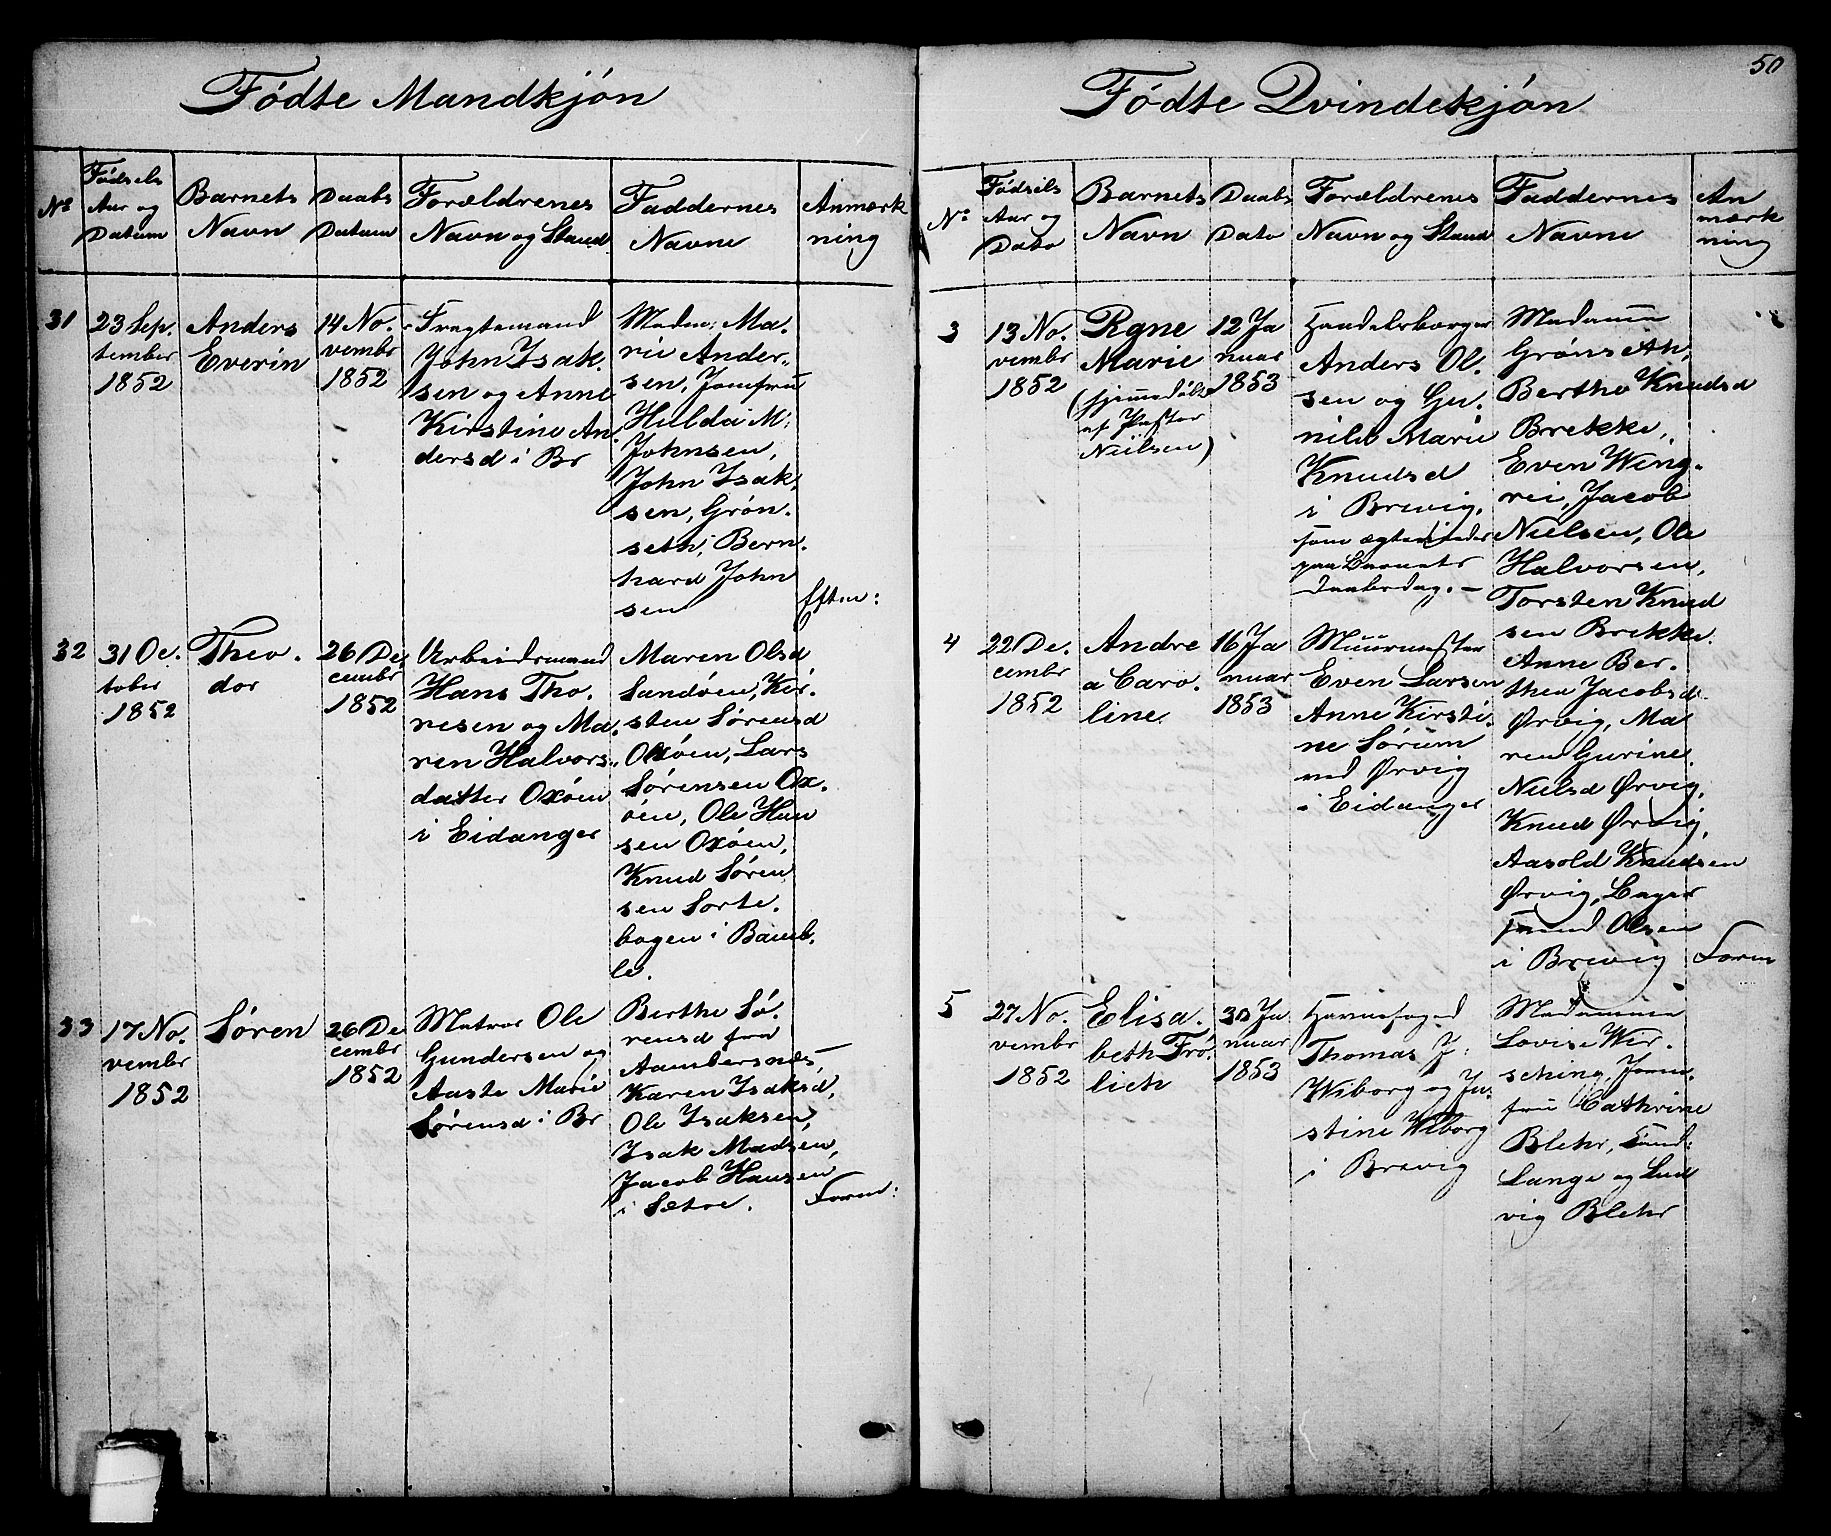 50
Fødte Mandkjøn
No
Fødsels
Aar og
Datum
Barnets
Navn
Daabs
Datum
Forældrenes
Navn og Stand
Faddernes
Navne
Anmærk
ning
31
23 Sep.
tember
1852
Anders
Everin
14 No.
vembr
1852
Fragtemand
John Isak.
sen og Anne
Kirstine An.
dersd i Br
Madm: Ma.
rie Ander„
sen, Jomfru
Hulda M:
Johnsen,
John Isak.
sen, Grøn.
seth, Bern.
hard John
sen
Efter:
32
31 Oc.
tober
1852
Theo.
dor
26 De.
cembr
1852
Arbeidsmand
Hans Tho.
resen og Ma.
ren Halvors.
datter Oxöen
i Eidanger
Maren Olsd
Sandöen, Kir.
sten Sørensd
Oxöen, Lars
Sørensen Ox.
öen, Ole Han
sen Oxöen,
Knud Søren
sen Sorte.
bogen i Bamb.
le.
33
17 No.
vembr
1852
Søren
26 De
cembr
1852
Matros Ole
Gundersen og
Aaste Marie
Sørensd i Br
Berthe Sø.
rensd fra
Karen Isaksd,
Ole Isaksen,
Isak Madsen,
Jacob Hansen
i Sætre.
Foren:
Fødte Qvindekjøn
No
Fødsels
Aar og
Dato
Barnets
Navn
Daabs
Dato
Forældrenes
Navn og Stand
Faddernes
Navne
An
mærk
ning
3
13 No.
vembr
1852
Rgne
Marie
(hjemmedøbt
af Pastor
Nielsen)
12 Ja
nuar
1853
Handelsborger
Anders Ol.
sen og Gu.
nild Marie
Knudsd
i Brevig.
som ægteviedes
paa Barnets
Daabsdag. —
Madamm
Grøns Ah,
Berthe Knudsd
Brekke,
Even Wing.
rei, Jacob
Nielsen, Ole
Halvorsen,
Torsten Knud
sen Brekke.
4
22 De.
cembr
1852
Andre
a Caro.
line.
16 Ja
nuar
1853
Muurmester
Even Larsen
Anne Kirsti.
ne Sørum
ved Ørvig
i Eidanger
Anne Ber.
thea Jacobsd.
Ørvig, Ma
ren Gurine
Nielsd Ørvig,
Knud Ørvig,
Aasold Knudsen
Ørvig,
Olsen
i Brevig
Foren
5
27 No.
vembr
1852
Elisa.
beth Frø.
lich
30 Ja
nuar
1853
Havnefoged
Thomas J:
Wiborg og Ju.
stine Wiborg
i Brevig
Madamme
Lovise Wir.
sching, Jom.
fru Cathrine
Blehr,
Lange og Lud
vig Blehr